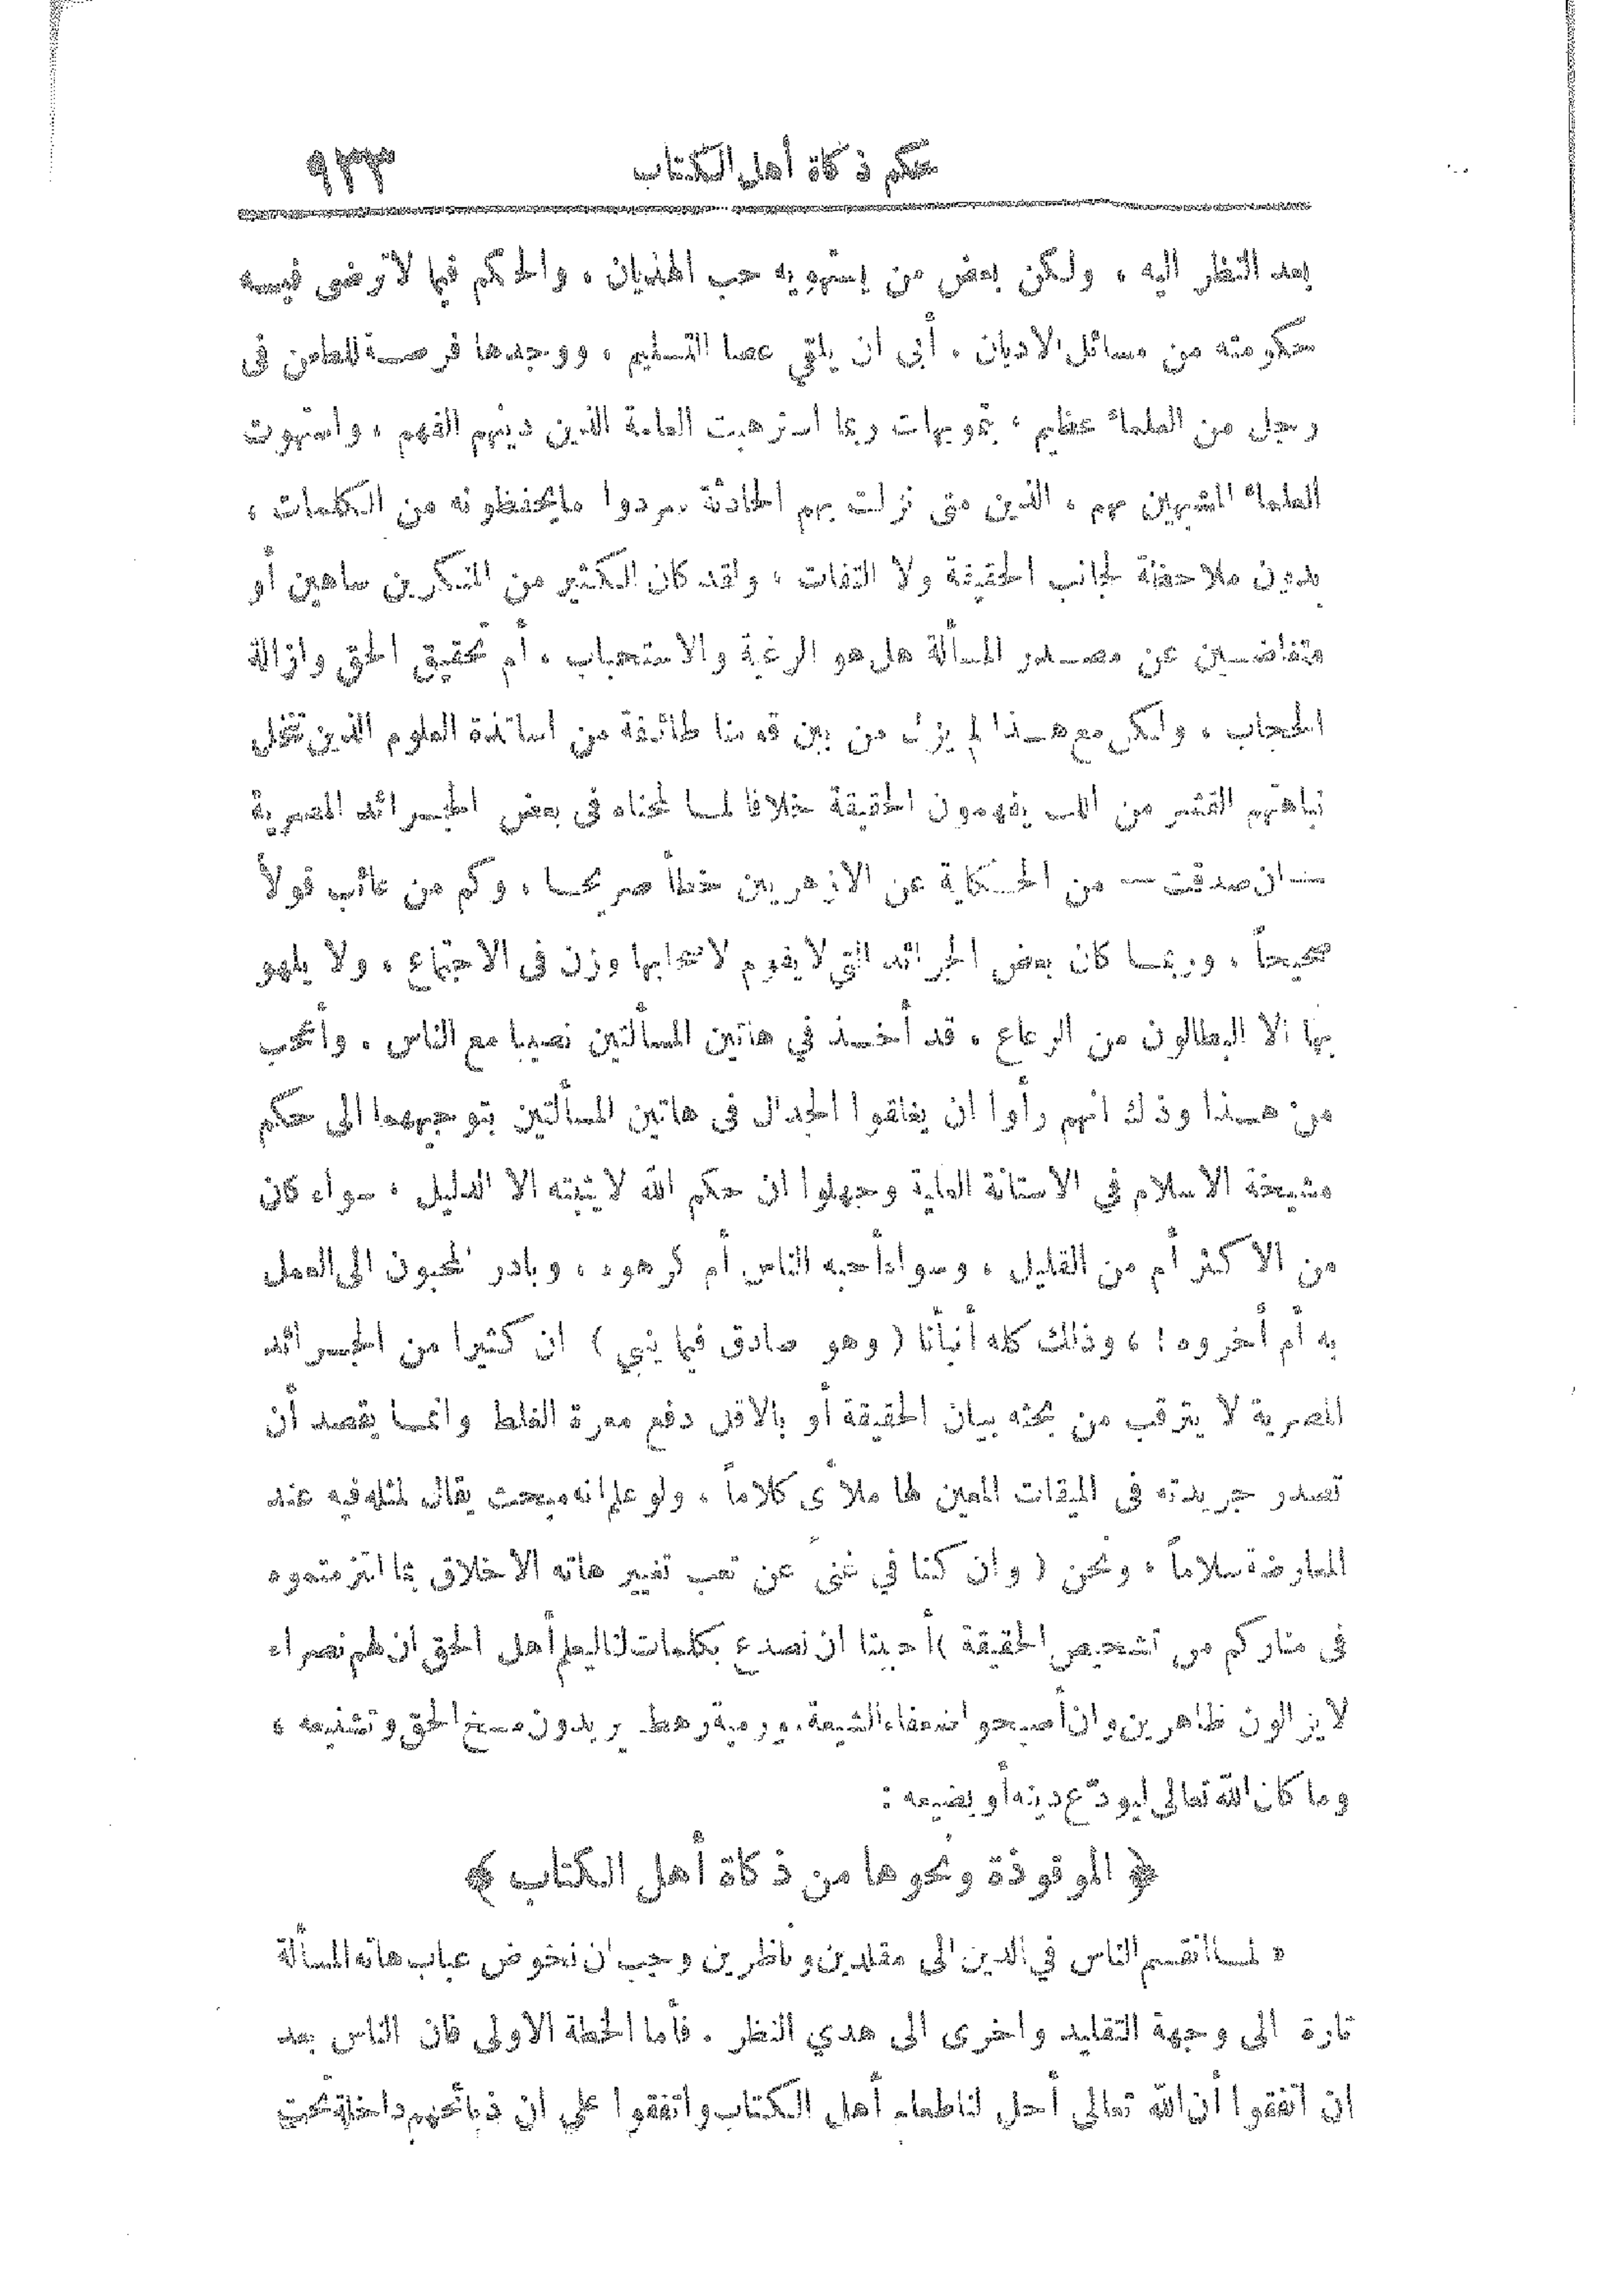 حكم ذكاة أهل الكتاب ٩٣٣
بعد النظر اليه ، ولكن بعض من يستهويه حب الهذيان ، والحكم فيما لا ترضى فيـه
حكومته من مسائل الاديان . أبى ان يلقي عصا التسليم ، ووجدها فرصـة للطعن فى
رجل من العلماء عظيم ، بتمويهات ربما استرهبت العامة الذين دينهم الفهم ، واستهوت
العلماء المشبهين بهم ، الذين متى نزلت بهم الحادثة سردوا مايحفظونه من الكلمات ،
بدون ملاحظة لجانب الحقيقة ولا التفات ، ولقد كان الكثير من المنكرين ساهين أو
متغاضـين عن مصـدر المسألة هل هو الرغبة والاستحباب ، أم تحقيق الحق وازالة
الحجاب ، ولكن مع هـذا لم يزل من بين قومنا طائفة من اساتذة العلوم الذين تنخل
نباهتهم القشر من اللب يفهمون الحقيقة خلافا لمـا لمحناه فى بعض الجـرائد المصرية
— ان صدقت — من الحـكاية عن الازهريين خطأ صريحـا ، وكم من عائب قولاً
صحيحاً ، وربمـا كان بعض الجرائد التى لا يقوم لاصحابها وزن فى الاجتماع ، ولا يلهو
بها الا البطالون من الرعاع ، قد أخـذ في هاتين المسألتين نصيبا مع الناس . وأعجب
من هـذا وذلك انهم رأوا ان يغلقوا الجدال فى هاتين المسألتين بتوجيههما الى حكم
مشيخة الاسلام في الاستانة العلية وجهلوا ان حكم الله لا يثبته الا الدليل ، سواء كان
من الاكثر أم من القليل ، وسواء أحبه الناس أم كرهوه ، وبادر المحبون الى العمل
به أم أخروه ! ، وذلك كله أنبأنا ( وهو صادق فيما ينبي ) ان كثيرا من الجـرائد
المصرية لا يترقب من بحثه بيان الحقيقة أو بالاقل دفع معرة الغلط وانمـا يقصد أن
تصدر جريدته فى الميقات المعين لها ملأى كلاماً ، ولو علم انه مبحث يقال لمثله فيه عند
المعارضة سلاماً ، ونحن ( وان كنا في غنىً عن تعب تغيير هاته الاخلاق بما التزمتموه
فى مناركم من تشخيص الحقيقة ) أحببنا ان نصدع بكلمات لنا ليعلم أهل الحق ان لهم نصراء
لا يزالون ظاهرين وان أصبحوا ضعفاء الشيعة، ورمية رهط يريدون مسخ الحق وتشنيعه ،
وما كان الله تعالى ليودّع دينه أو يضيعه :
﴿ الموقوذة ونحوها من ذكاة أهل الكتاب ﴾
« لمـا انقسم الناس في الدين الى مقلدين وناظرين وجب ان نخوض عباب هاته المسألة
تارة الى وجهة التقليد واخرى الى هدي النظر . فأما الخطة الاولى فان الناس بعد
ان اتفقوا أن الله تعالى أحل لنا طعام أهل الكتاب واتفقوا على ان ذبائحهم داخلة تحت